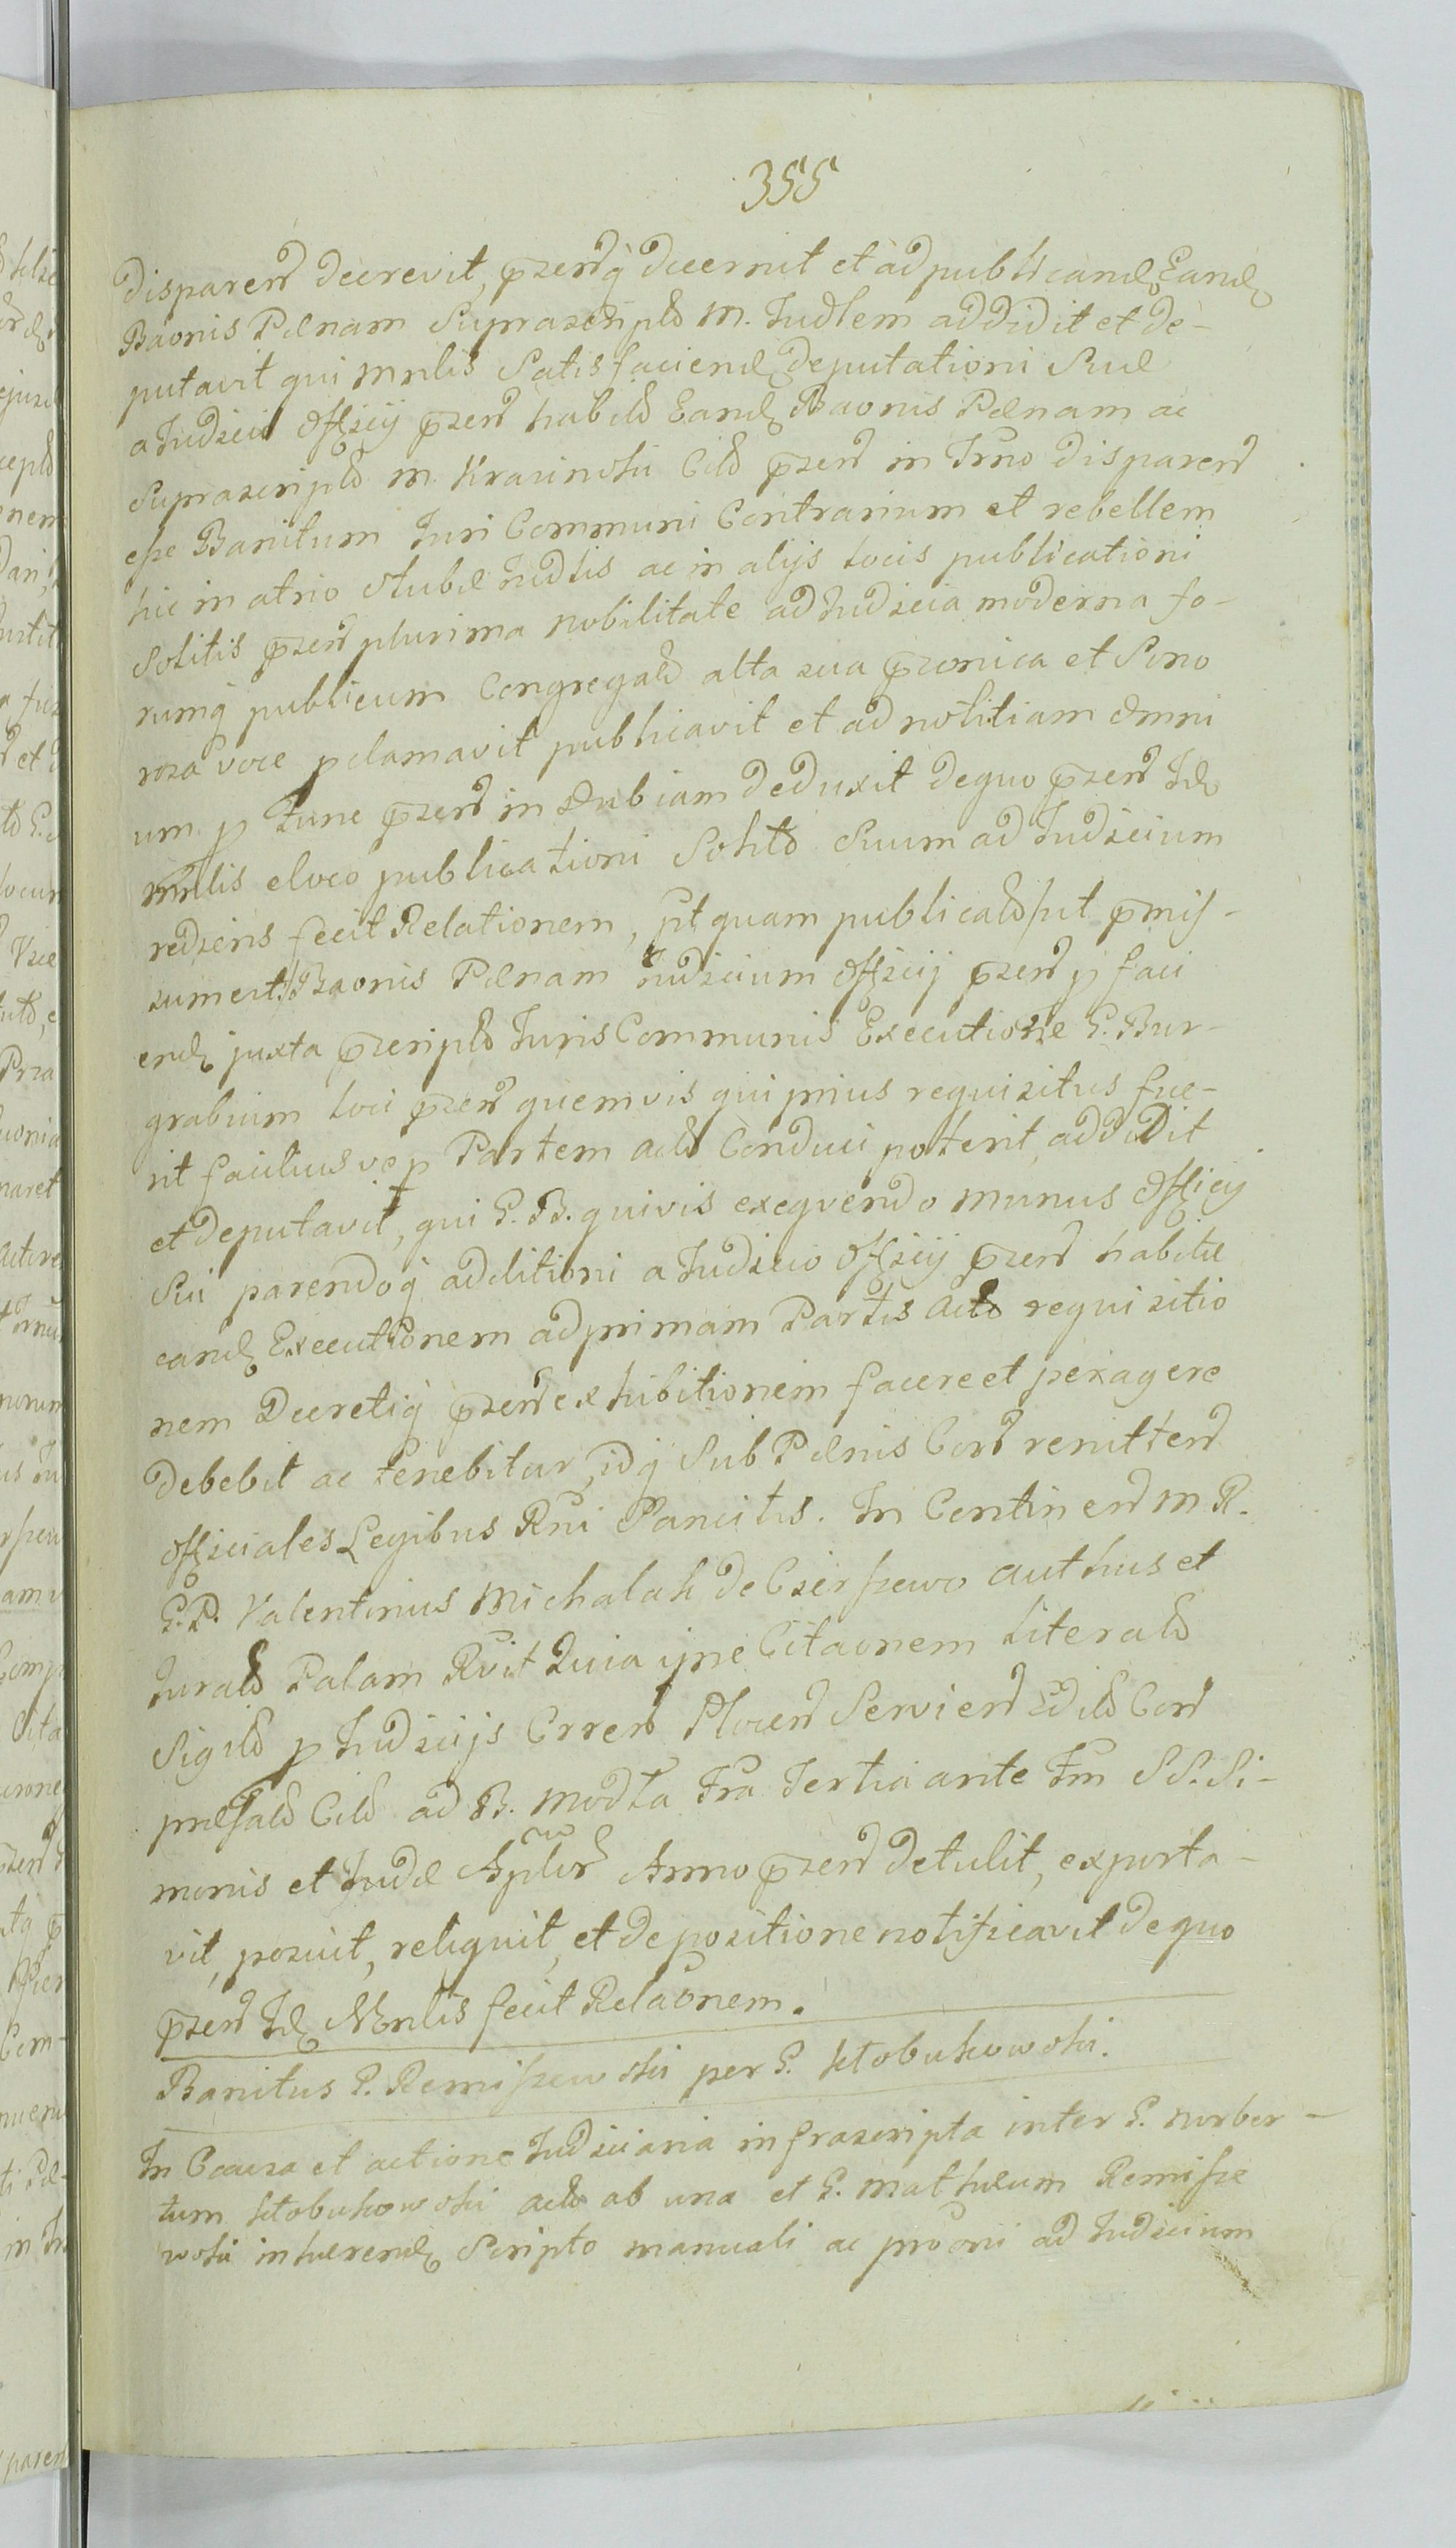 355
disparen decrevit, pzenq decernit et ad publicand Eand
Baonis Pænam Suprascripto M. Judlem addidit et de-
putavit qui Mnlis Satisfaciend deputationi Suæ
a Judicio Offcij pzen habito Eand Baonis Pænam ac
Suprascripto M. Krasinski Cito pzen in Trno disparen
esse Banitum Juri Communi Contrarium et rebellem
hic in atrio Stubæ Judlis ac in alijs locis publicationi
Solitis pzen plurima nobilitate ad Judicia moderna fo-
rumq publicum Congregato alta sua pzonica et Sono
roza voce pclamavit publicavit et ad notitiam omni
um p tunc pzen in dubiam deduxit dequo pzen Id
Mnlis eloco publicationi Solito Suum ad Judicium
rediens fecit Relationem, pt quam publicato /ut pmis-
sum est/ Baonis Pænam Judicium Offcij pzen p faci
end juxta pzcripto Juris Communis Executione G. Bur-
grabium loci pzen quemvis qui prius requisitus fue-
rit faciliusve p Partem Acto Conduci poterit, addidit
et deputavit, qui G. B. quivis exeqvendo munus Officij
Sui parendoq additioni a Judicio Offcij pzen habitæ
eand Executionem ad primam Partis Acto requisitio
nem Decretiq pzen exhibitionem facere et peragere
debebit ac tenebitur, idq Sub Pænis Con renitten
Officiales Legibus Rni Sancitis. In Continen M R.
G. P. Valentinus Michalak de Czerszewo authus et
Jurato Palam Rvit Quia ipse Citaonem literato
Sigilo p Judicijs Crren Plocen Servien Edito Con
pnlsato Cito ad B. Modla Fra Tertia ante Fm SS. Si-
monis et Judæ Aplor Anno pzen detulit, exporta-
vit, pozuit, reliquit, et de pozitione notificavit de quo
pzen Id Mnlis fecit Relaonem.
Banitus G. Remiszewski per G. Kłobukowski.
In Causa et actione Judiciaria infrascripta inter G. Norber-
tum Kłobukowski Acto ab una et G. Mathæum Remisze
wski inhærend Scripto manuali ac proni ad Judicium